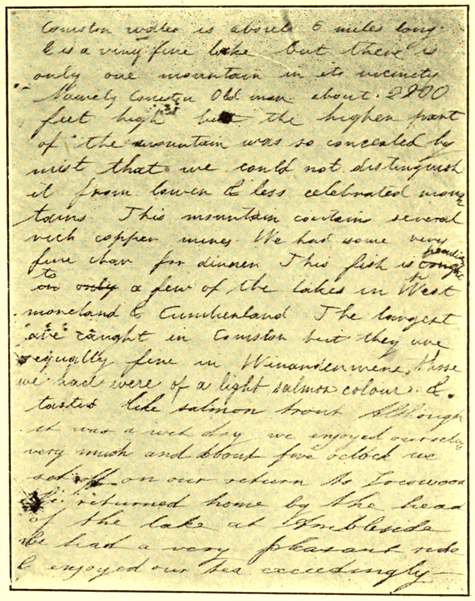 Coniston water is about 6 miles long
& is a very fine lake but there is
only one mountain in its vicinity
Namely Coniston Old man about 2800
feet high but the higher part
of the mountain was so concealed by
mist that we could not distinguish
it from lower & less celebrated moun
tains This mountain contains several
rich copper mines. We had some very
fine char for dinner This fish is
to a few of the lakes in West
moreland & Cumberland The largest
are caught in Coniston but they are
equally fine in Winandermere, those
we had were of a light salmon colour. &
tasted like salmon trout Although
it was a wet day we enjoyed ourselves
very much and about five oclock we
set off on our return to Lowwood
returned home by the head
of the lake at Ambleside
We had a very pleasant ride
& enjoyed our tea exceedingly